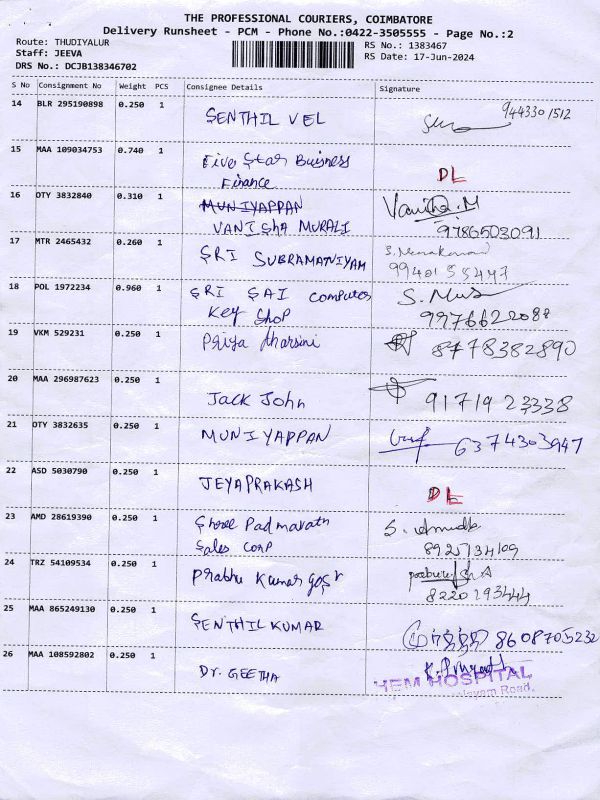 THE PROFESSIONAL COURIERS, COIMBATORE
Delivery Runsheet - PCM - Phone No.:0422-3505555 - Page No.:2
Route: THUDIYALUR
RS No.: 1383467
Staff: JEEVA
RS Date: 17-Jun-2024
DRS No.: DCJB138346702
S No Consignment No Weight PCS Consignee Details Signature
14 BLR 295190898 0.250 1 SENTHIL VEL 9443301512
15 MAA 109034753 0.740 1 Five Star Buisness
Finance DL
16 OTY 3832840 0.310 1 MUNIYAPPAN Vanitha.M
VANISHA MURALI 9786503091
17 MTR 2465432 0.260 1 SRI SUBRAMANIYAM
18 POL 1972234 0.960 1 SRI SAI computer
Key Shop
19 VKM 529231 0.250 1 Priya tharsini 8778382890
20 MAA 296987623 0.250 1 Jack John 9171923338
21 OTY 3832635 0.250 1 MUNIYAPPAN 6374303947
22 ASD 5030790 0.250 1 JEYAPRAKASH DL
23 AMD 28619390 0.250 1 Shree Padmavath
Sales corp
24 TRZ 54109534 0.250 1 Prabhu Kumar
8220293444
25 MAA 865249130 0.250 1 SENTHIL KUMAR 8608705232
26 MAA 108592802 0.250 1 Dr. GEETHA
HEM HOSPITAL
Road.